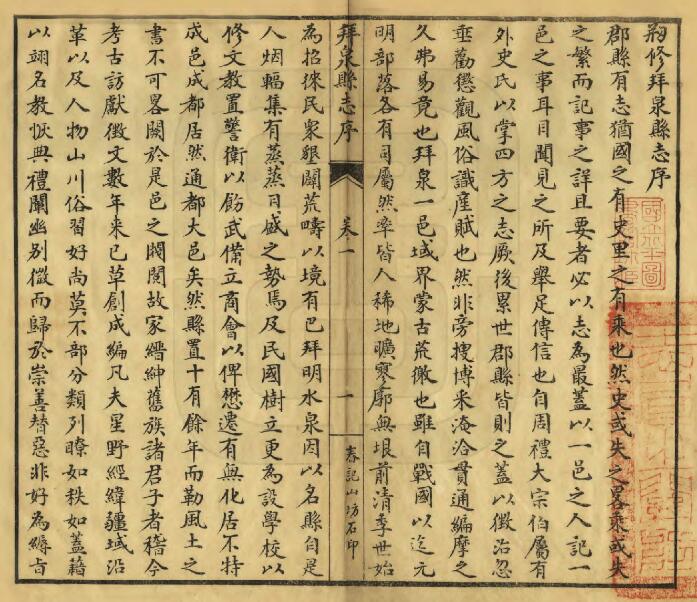 刱修拜泉縣志序
郡縣有志猶國之有史里之有乘也然史或失之畧乘或失
之繁而記事之詳且要者必以志為最蓋以一邑之人記一
邑之事耳目聞見之所及舉足傳信也自周禮大宗伯屬有
外史氏以掌四方之志厥後累世郡縣皆則之蓋以徵治忽
垂勸懲觀風俗識產賦也然非旁搜博采淹洽貫通編摩之
久弗易竟也拜泉一邑域界蒙古荒徼也雖自戰國以迄元
明部落各有司屬然率皆人稀地曠寥廓無垠前清季世始
拜泉縣志序
卷一
一
春記山坊石印
為招徠民眾墾闢荒疇以境有巴拜明水泉因以名縣自是
人烟輻集有蒸蒸日盛之勢焉及民國樹立更為設學校以
修文教置警衛以飭武備立商會以俾懋遷有無化居不特
成邑成都居然通都大邑矣然縣置十有餘年而勒風土之
書不可畧闕於是邑之閥閱故家縉紳舊族諸君子者稽今
考古訪獻徵文數年來已草創成編凡夫星野經緯疆域沿
革以及人物山川俗習好尚莫不部分類列瞭如秩如蓋藉
以翊名教恢典禮闡幽別微而歸於崇善替惡非好為縟旨